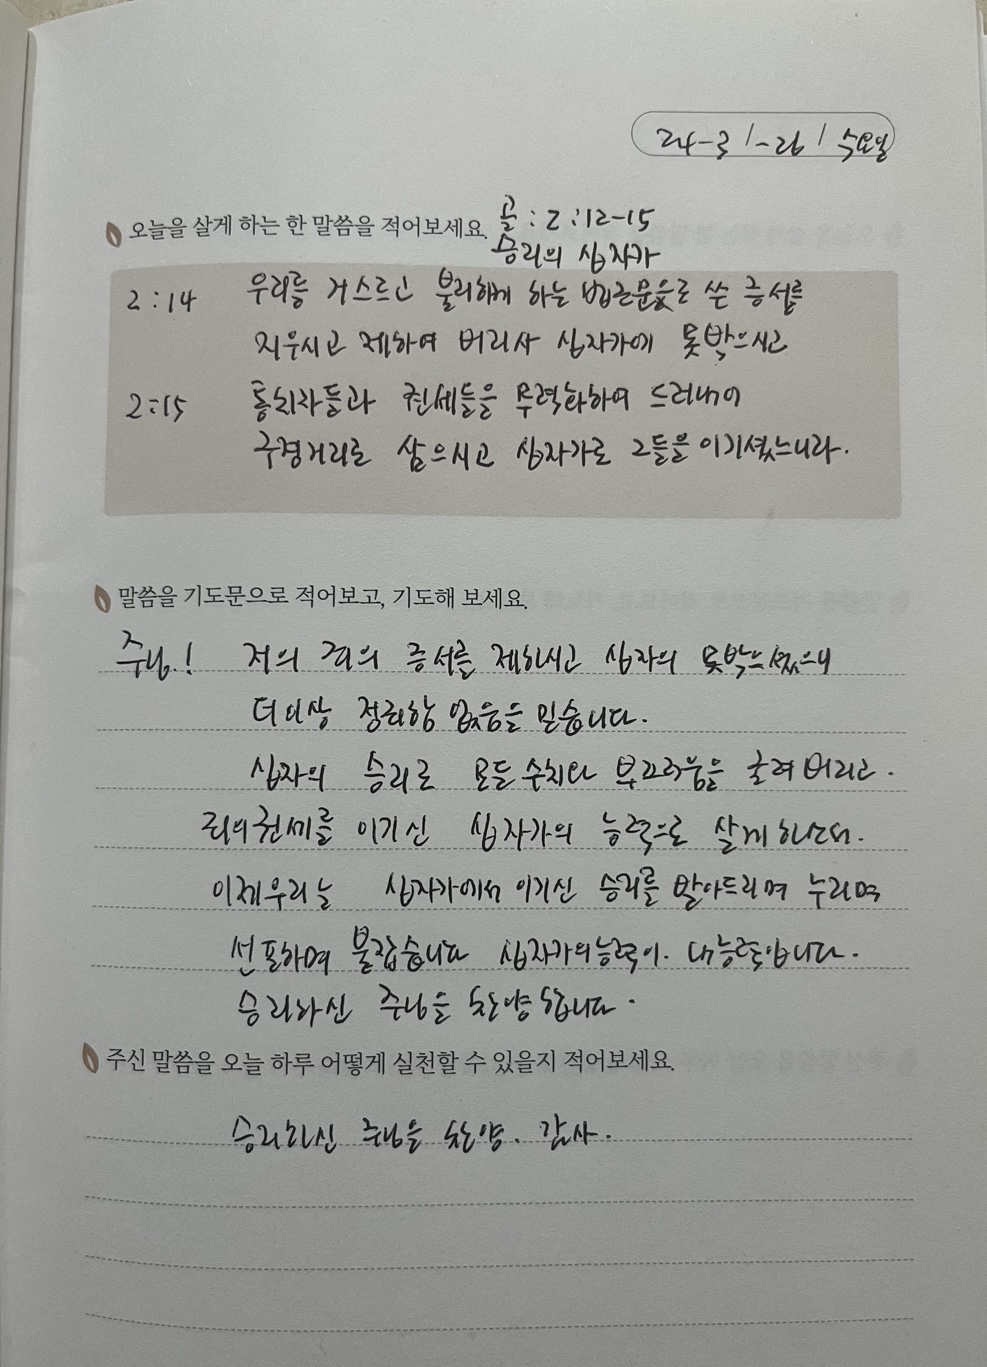 24-3/-26/ 수요일
오늘을 살게 하는 한 말씀을 적어보세요. 골:2:12-15
승리의 십자가
2:14 우리를 거스르고 불리하게 하는 법조문으로 쓴 증서를
지우시고 제하여 버리사 십자가에 못박으시고
2:15 통치자들과 권세들을 무력화하여 드러내어
구경거리로 삼으시고 십자가로 그들을 이기셨느니라.
말씀을 기도문으로 적어보고, 기도해 보세요.
주님! 저의 죄의 증서를 제하시고 십자의 못박으셨으니
더이상 정죄함 없음을 믿습니다.
십자의 승리로 모든 수치와 부끄러움을 굴려 버리고.
죄의권세를 이기신 십자가의 능력으로 살게 하소서.
이제우리는 십자가에서 이기신 승리를 받아드리며 누리며
선포하며 붙잡습니다 십자가의능력이. 내능력입니다.
승리하신 주님을 찬양 합니다.
주신 말씀을 오늘 하루 어떻게 실천할 수 있을지 적어보세요.
승리하신 주님을 찬양. 감사.